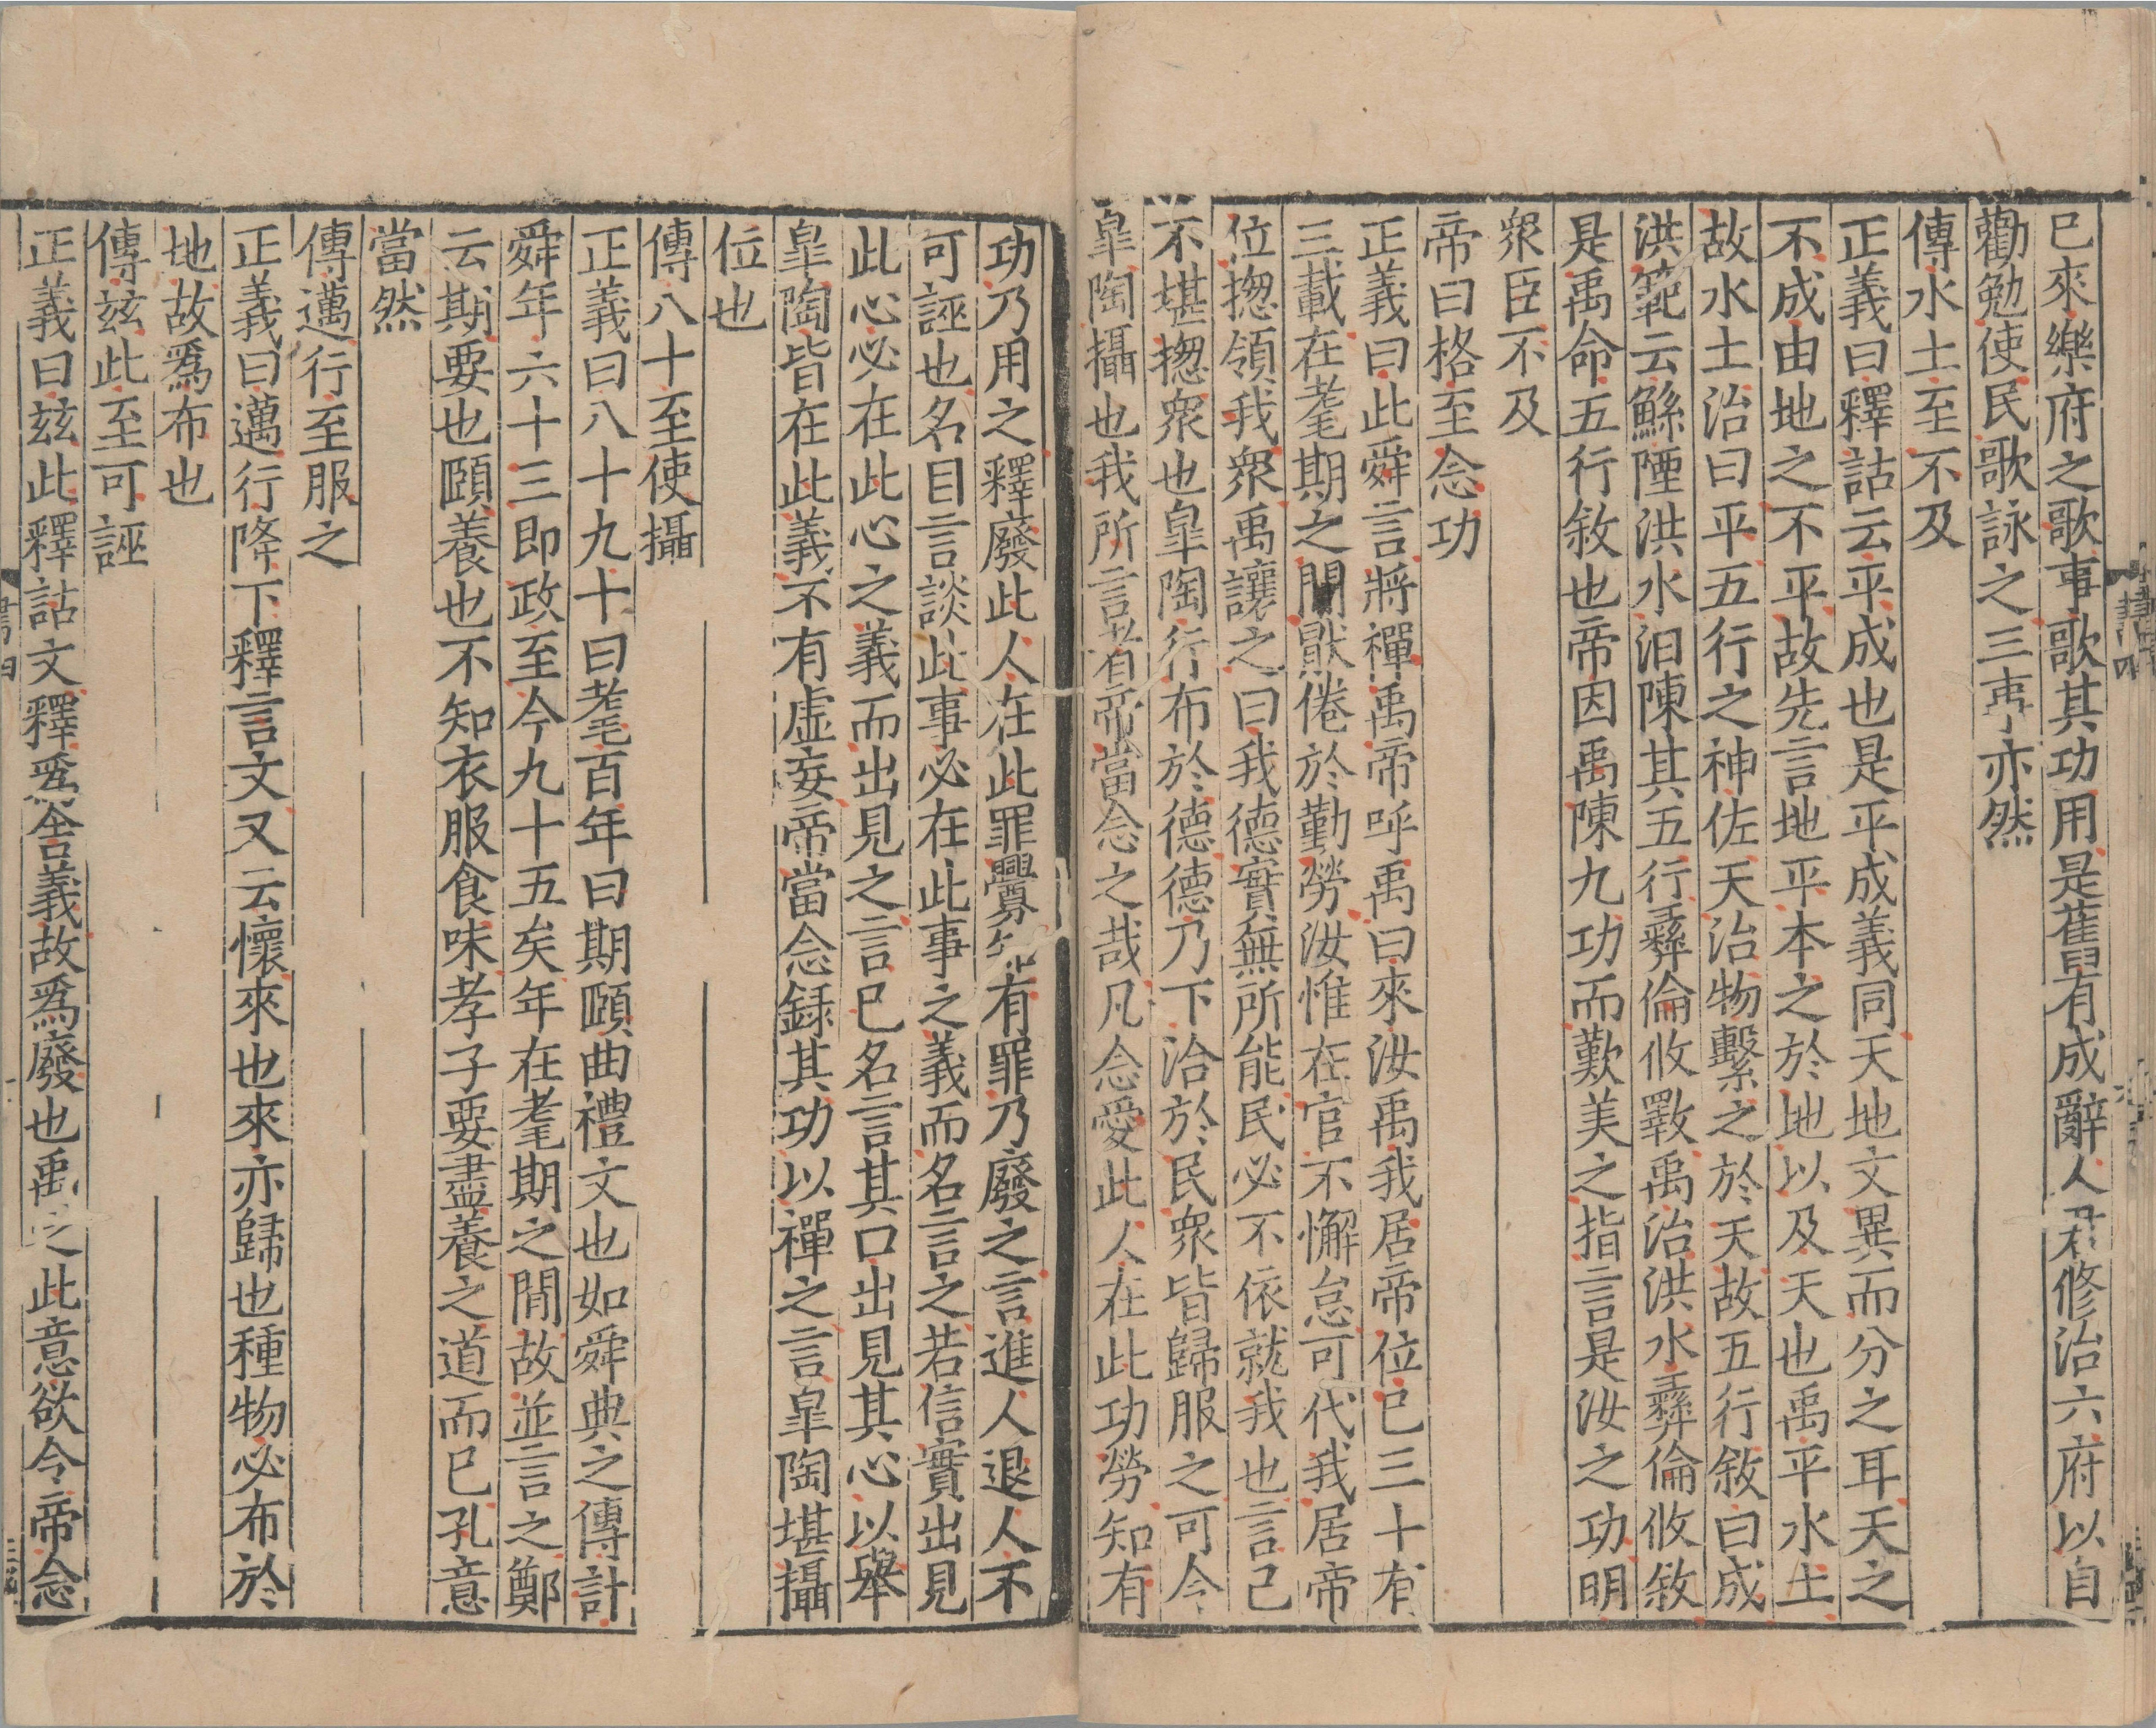 已來樂府之歌事歌其功用是舊有成辭人君修治六府以自
勸勉使民歌詠之三事亦然
傳水土至不及
正義曰釋詁云平成也是平成義同天地文異而分之耳天之
不成由地之不平故先言地平本之於地以及天也禹平水土
故水土治曰平五行之神佐天治物繫之於天故五行敘曰成
洪範云鯀陻洪水汩陳其五行彝倫攸斁禹治洪水彝倫攸敘
是禹命五行敘也帝因禹陳九功而歎美之指言是汝之功明
衆臣不及
帝曰格至念功
正義曰此舜言將禪禹帝呼禹曰來汝禹我居帝位已三十有
三載在耄期之間猒倦於勤勞汝惟在官不懈怠可代我居帝
位揔領我衆禹讓之曰我德實無所能民必不依就我也言己
不堪揔衆也臯陶行布於德德乃下洽於民衆皆歸服之可令
臯陶攝也我所言者帝當念之哉凡念愛此人在此功勞知有
功乃用之釋廢此人在此罪釁知有罪乃廢之言進人退人不
可誣也名目言談此事必在此事之義而名言之若信實出見
此心必在此心之義而出見之言已名言其口出見其心以舉
臯陶皆在此義不有虛妄帝當念録其功以禪之言臯陶堪攝
位也
傳八十至使攝
正義曰八十九十曰耄百年曰期頤曲禮文也如舜典之傳計
舜年六十三即政至今九十五矣年在耄期之間故並言之鄭
云期要也頤養也不知衣服食味孝子要盡養之道而已孔意
當然
傳邁行至服之
正義曰邁行降下釋言文又云懷來也來亦歸也種物必布於
地故爲布也
傳玆此至可誣
正義曰玆此釋詁文釋爲舍義故爲廢也禹之此意欲令帝念